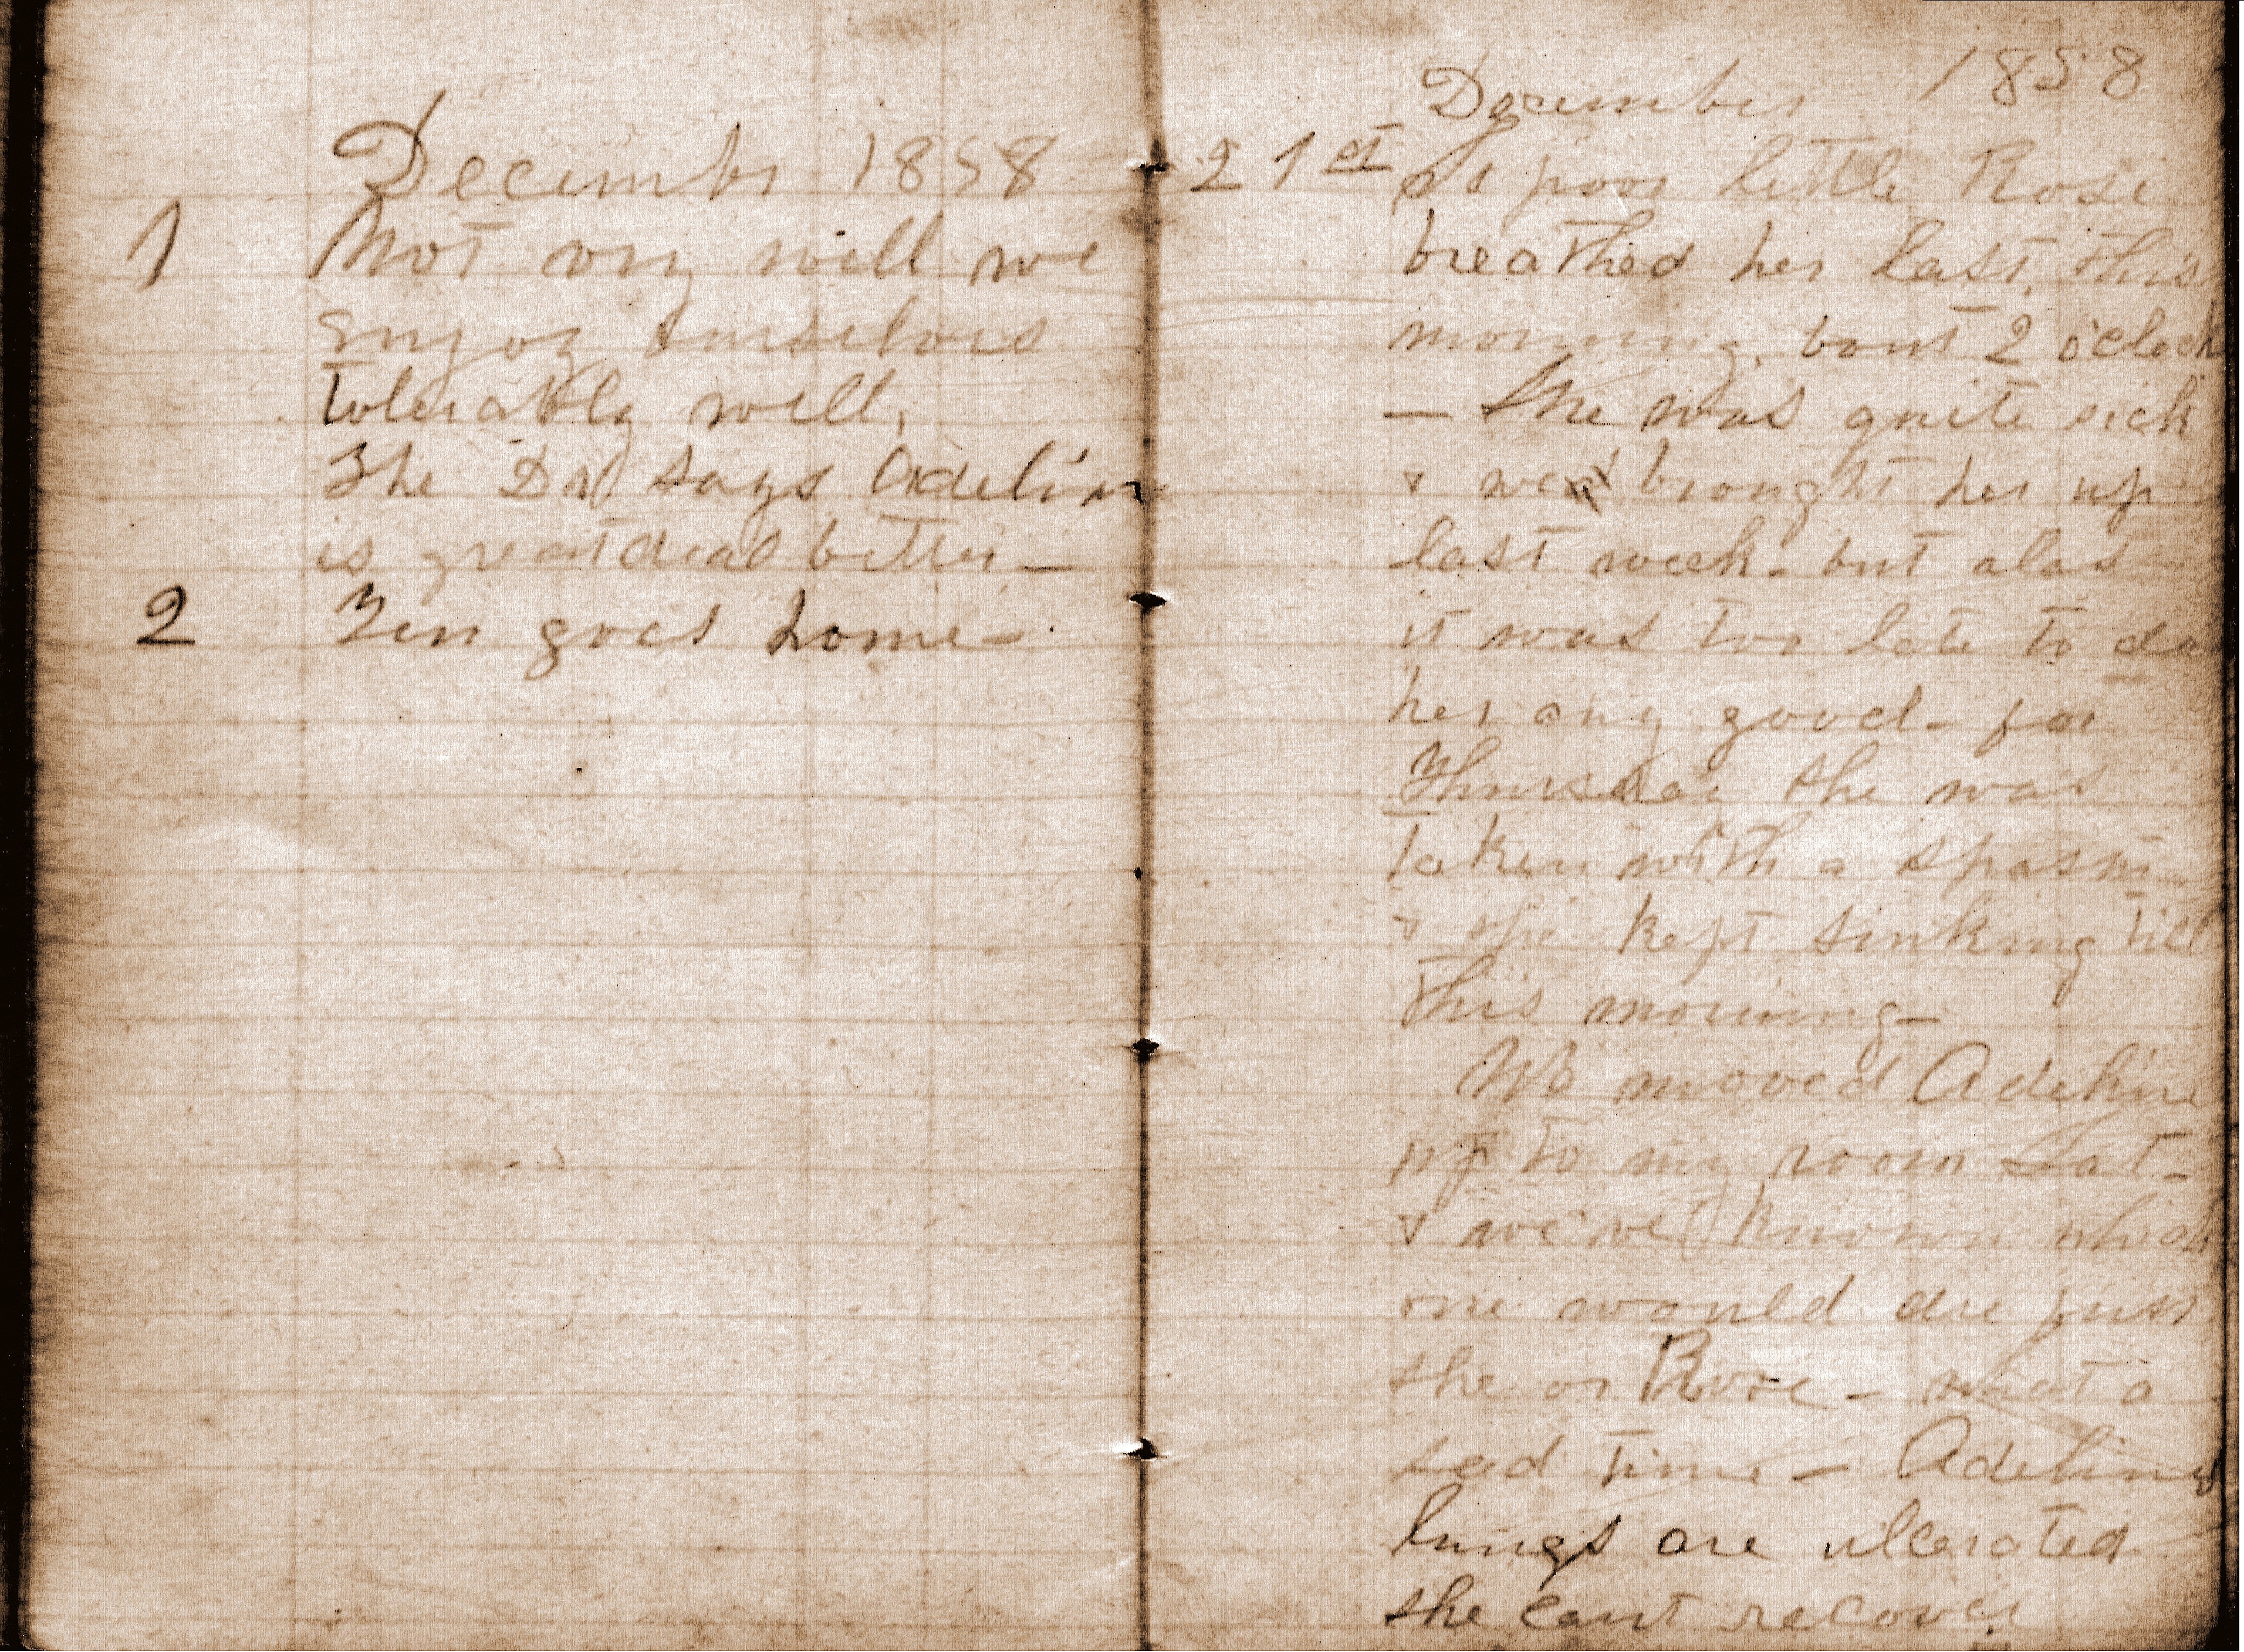 December 1858
1 Not very well we
enjoy ourselves
tolerably well,
The Dr says Adelin
is great deal better —
2 goes home —
December 1858
21st poor little Rose
breathed her last, this
morning, bout 2 o'clock
— She was quite sick
& we brought her up
last week - but alas
it was too late to do
her any good - for
Thursday she was
taken with a spasm
& she kept sinking till
this morning —
We moved Adeline
up to my room Sat -
& we've known which
one would die first
she or Rose - what a
sad time — Adelines
lungs are ulcerated
she cant recover